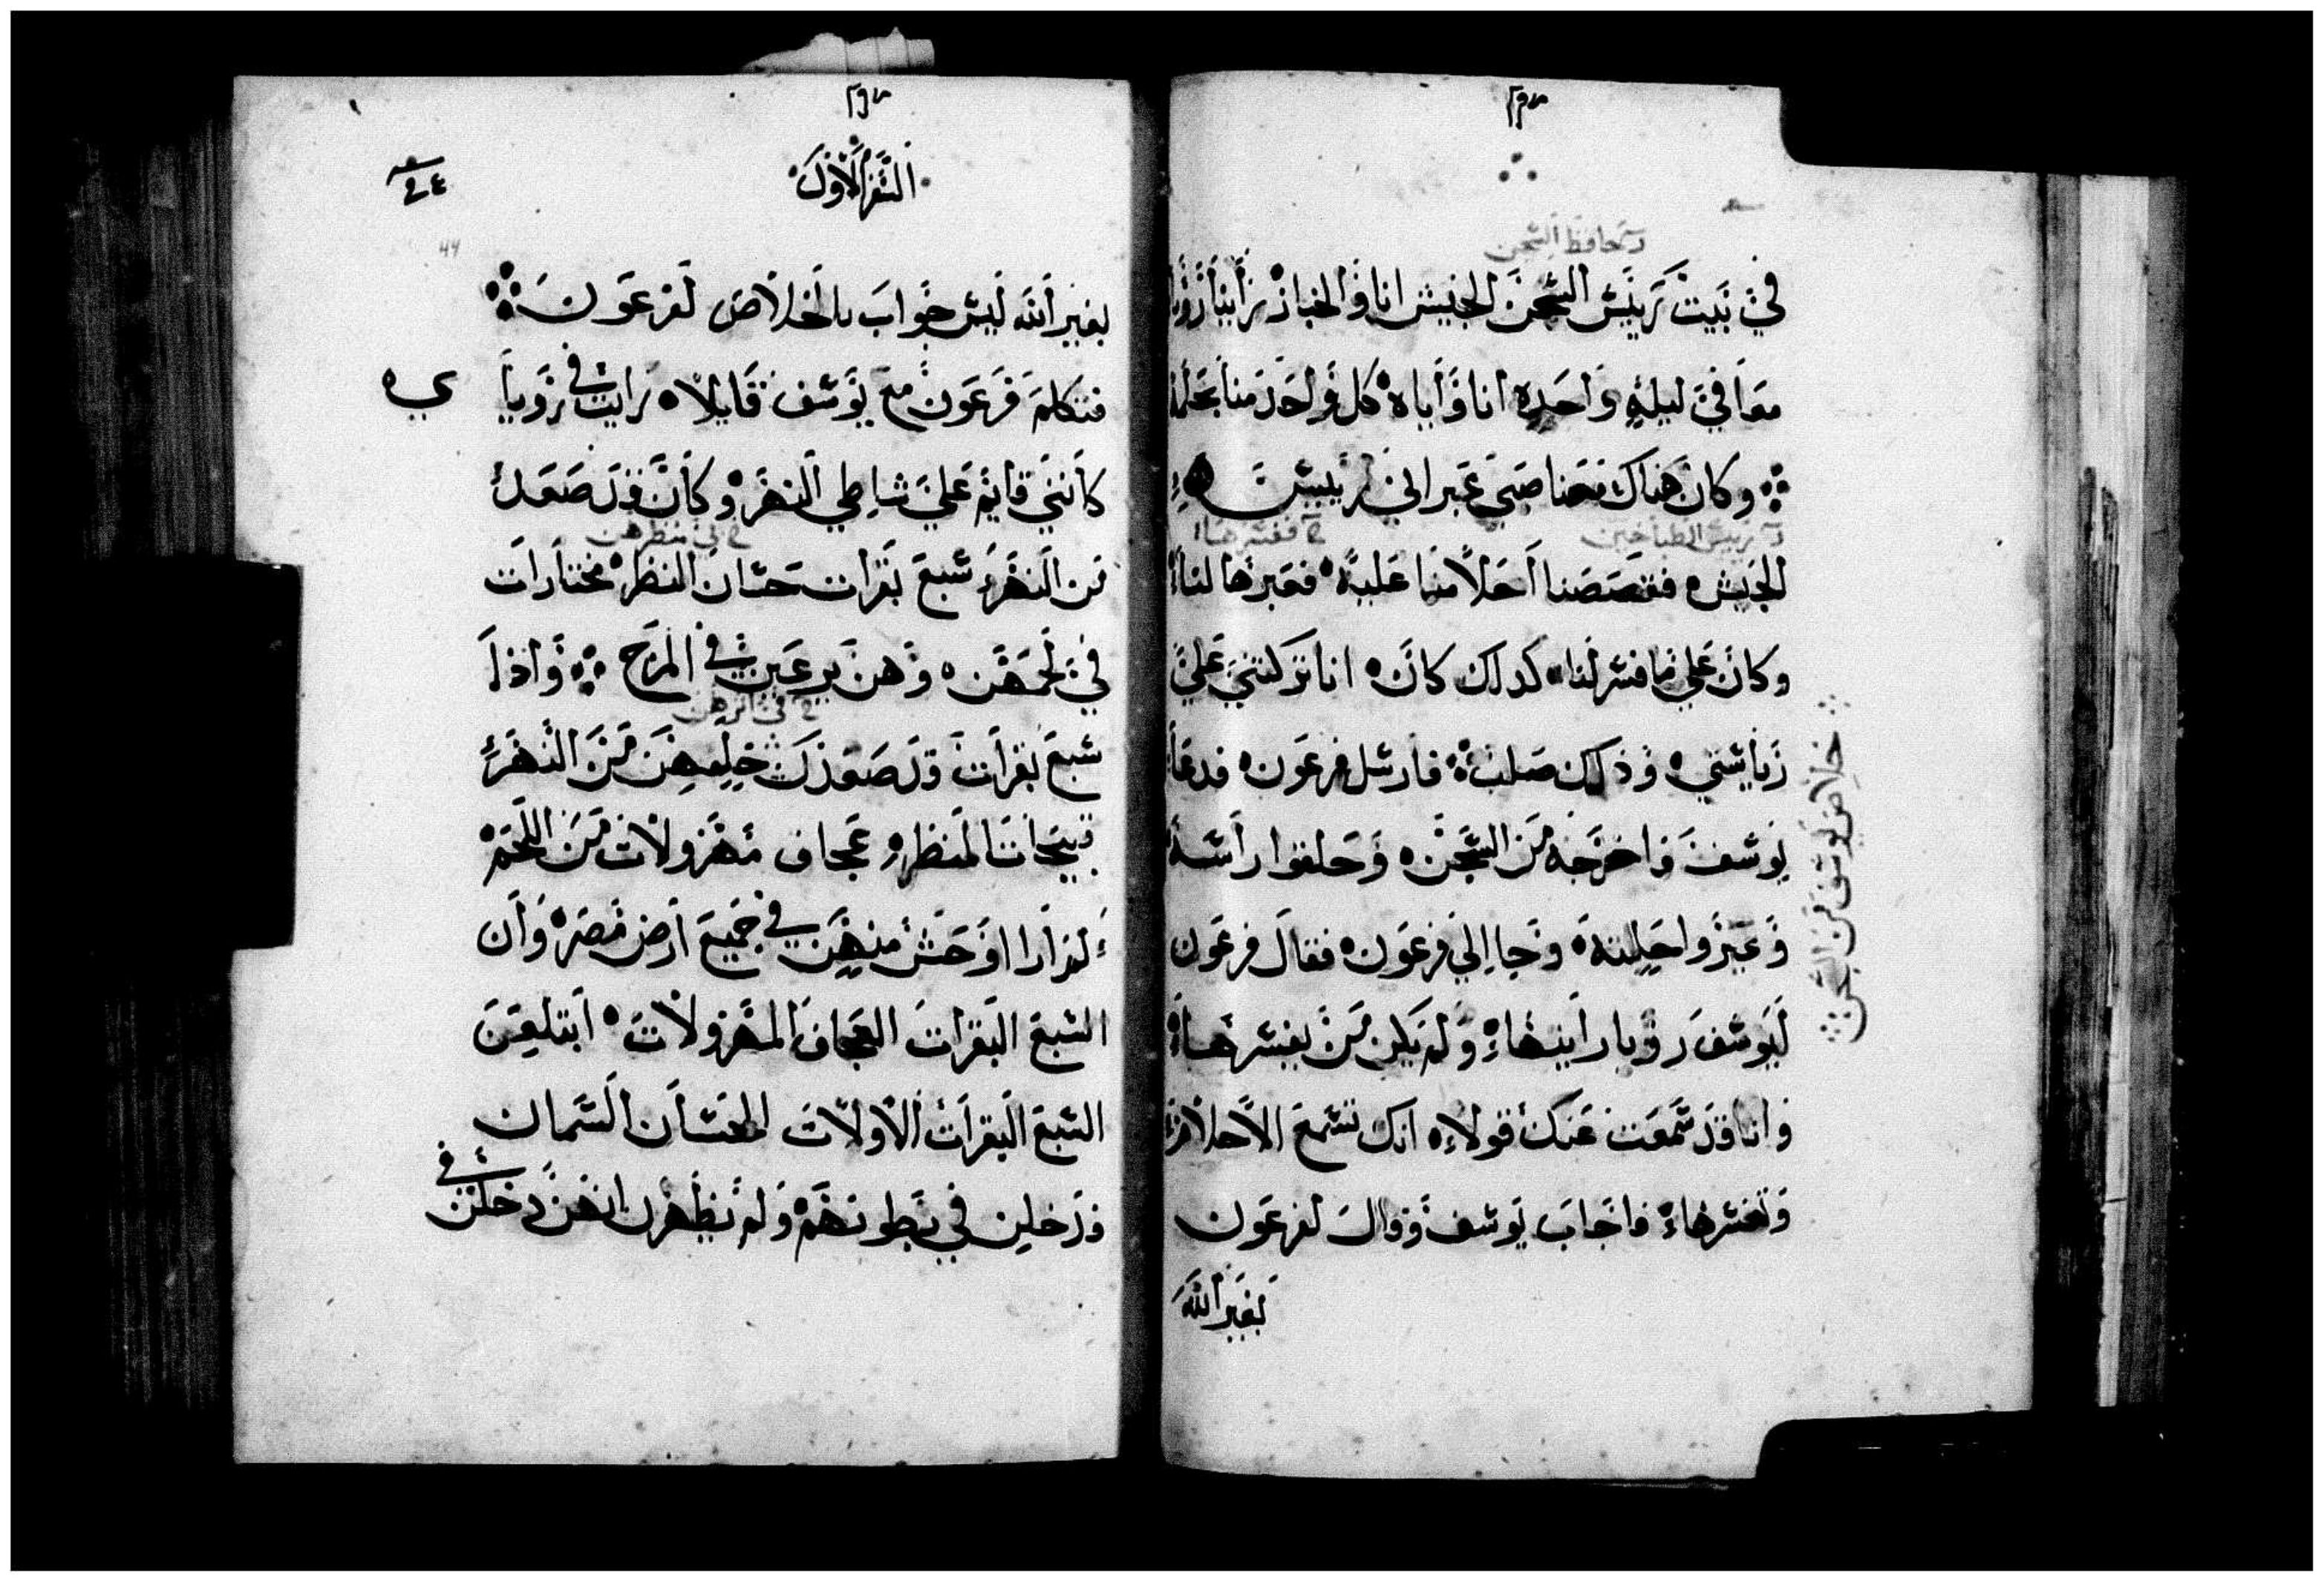 في بيت رييس السجن الجيش انا والخباز راينا رؤيا
معا في ليله واحده انا واياه كل واحد منا بحلمه
وكان هناك معنا صبي عبراني لرييس
الجيش فقصصنا احلامنا عليه فعبرها لنا
وكان علي ما فسر لنا كدلك كان انا تركتني علي
رياستي وذلك صلب فارسل فرعون فدعا
يوسف واخرجه من السجن وحلقوا راسه
وغيروا حليته وجا الي فرعون فقال فرعون
ليوسف رؤيا رايتها ولم يكن من يفسرها
وانا قد سمعت عنك قولا انك تسمع الاحلام
وتفسرها فاجاب يوسف وقال لفرعون
بغير الله
د حافظ السجن
د رييس الطباخين
خ ففسرها
خلاص يوسف من السجن
السفر الاول
بغير الله ليس جواب بالخلاص لفرعون
فتكلم فرعون مع يوسف قايلا رايت في رويا
كانني قايم علي شاطي النهر وكان قد صعد
من النهر سبع بقرات حسان المنظر مختارات
في لحمهن وهن يرعين في المرج واذا
سبع بقرات قد صعدت خلفهن من النهر
قبيحات المنظر عجاف مهزولات من اللحم
لم ار اوحش منهن في جميع ارض مصر وان
السبع البقرات العجاف المهزولات ابتلعن
السبع البقرات الاولات الحسان السمان
فدخلن في بطونهم ولم يظهرن انهن دخلن في
خ في منظرهن
خ في اثرهن